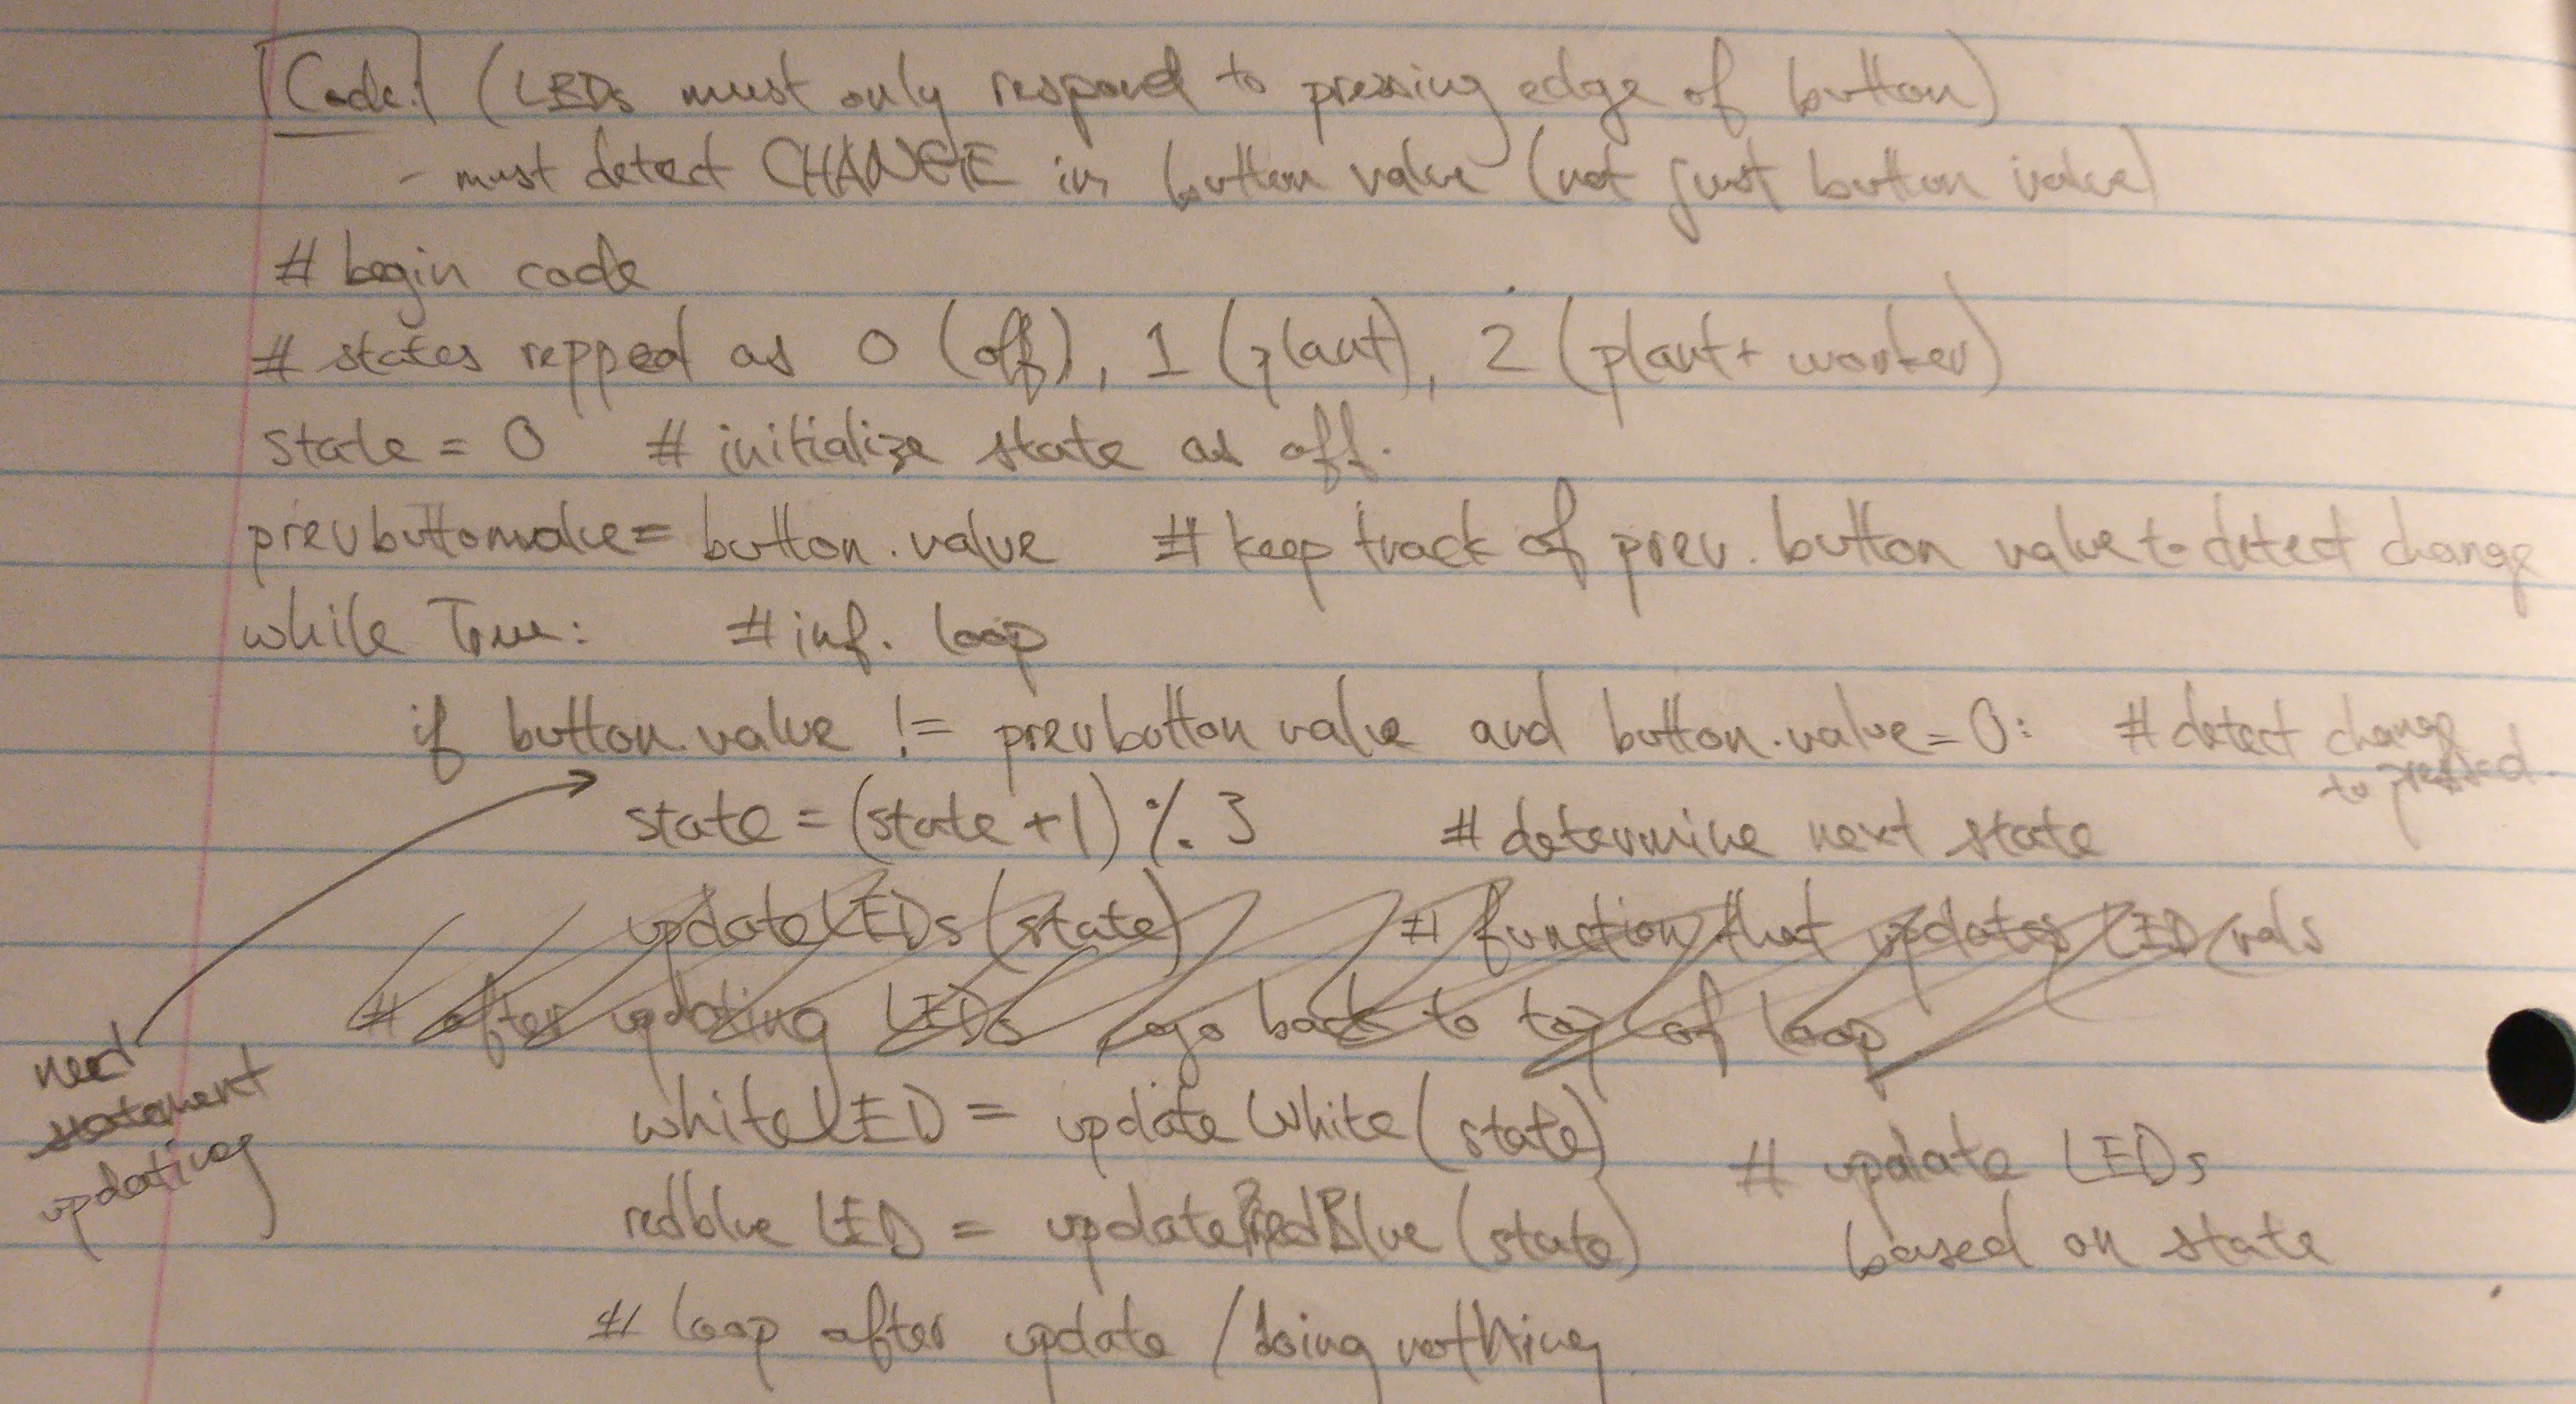 Code: (LEDs must only respond to pressing edge of button)
- must detect CHANGE in button value (not just button value)
# begin code
# states repped as 0 (off), 1 (plant), 2 (plant + worker)
state = 0 # initialize state as off.
prevbuttonvalue = button.value # keep track of prev. button value to detect change
while True: # inf. loop
if button.value != prevbuttonvalue and button.value = 0: # detect change
to pressed.
state = (state + 1) % 3 # determine next state
updateLEDs (state) # function that updates LED vals
# after updating LEDs go back to top of loop
whiteLED = updateWhite (state)
# update LEDs
redblueLED = updateRedBlue (state)
based on state
# loop after update / doing nothing
need
statement
updating